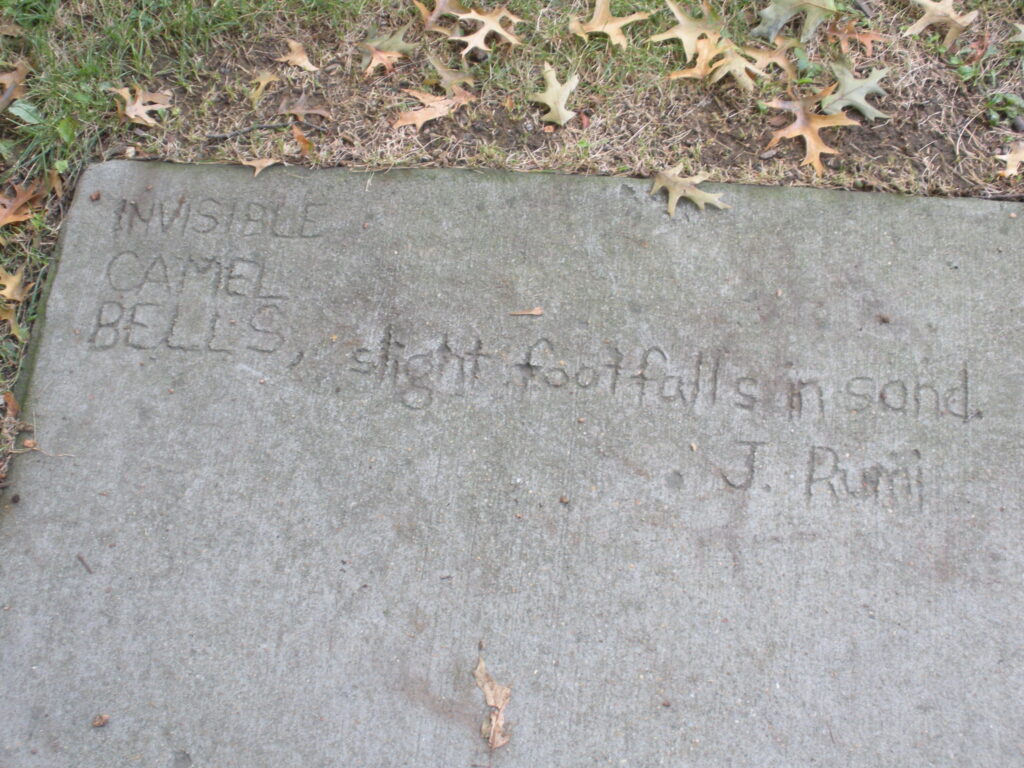 INVISIBLE
CAMEL
BELLS, slight footfalls in sand.
J. Rumi